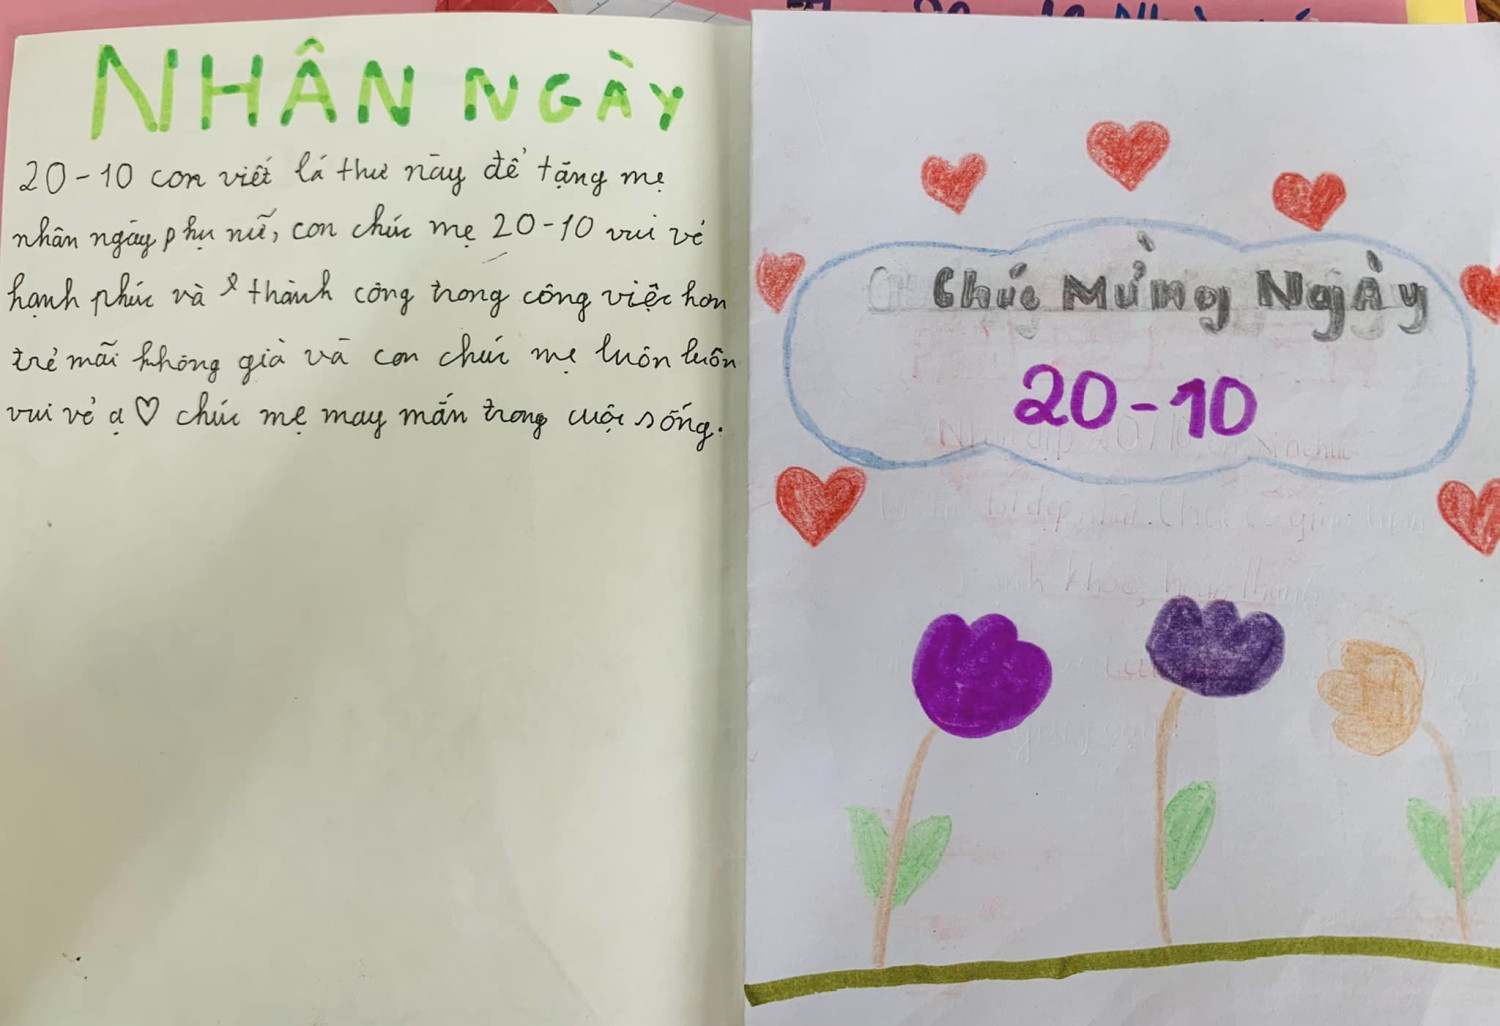 NHÂN NGÀY
20-10 con viết lá thư này để tặng mẹ
nhân ngày phụ nữ, con chúc mẹ 20-10 vui vẻ
hạnh phúc và thành công trong công việc hơn
trẻ mãi không già và con chúc mẹ luôn luôn
vui vẻ ạ♡ chúc mẹ may mắn trong cuộc sống.
Chúc Mừng Ngày
20-10